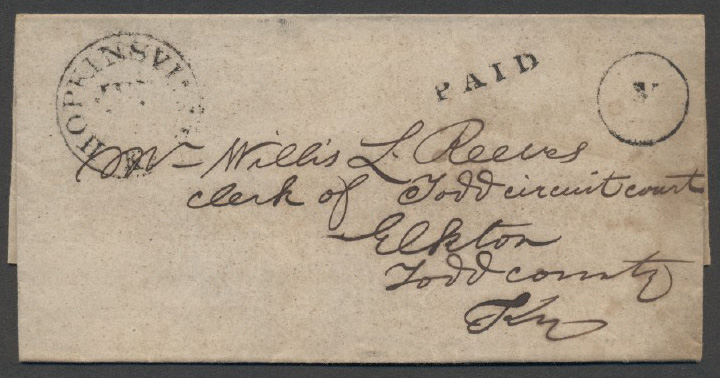 HOPKINSVILLE
PAID
V
Mr Willis L. Reeves
clerk of Todd circuit court
Elkton
Todd county
Ky